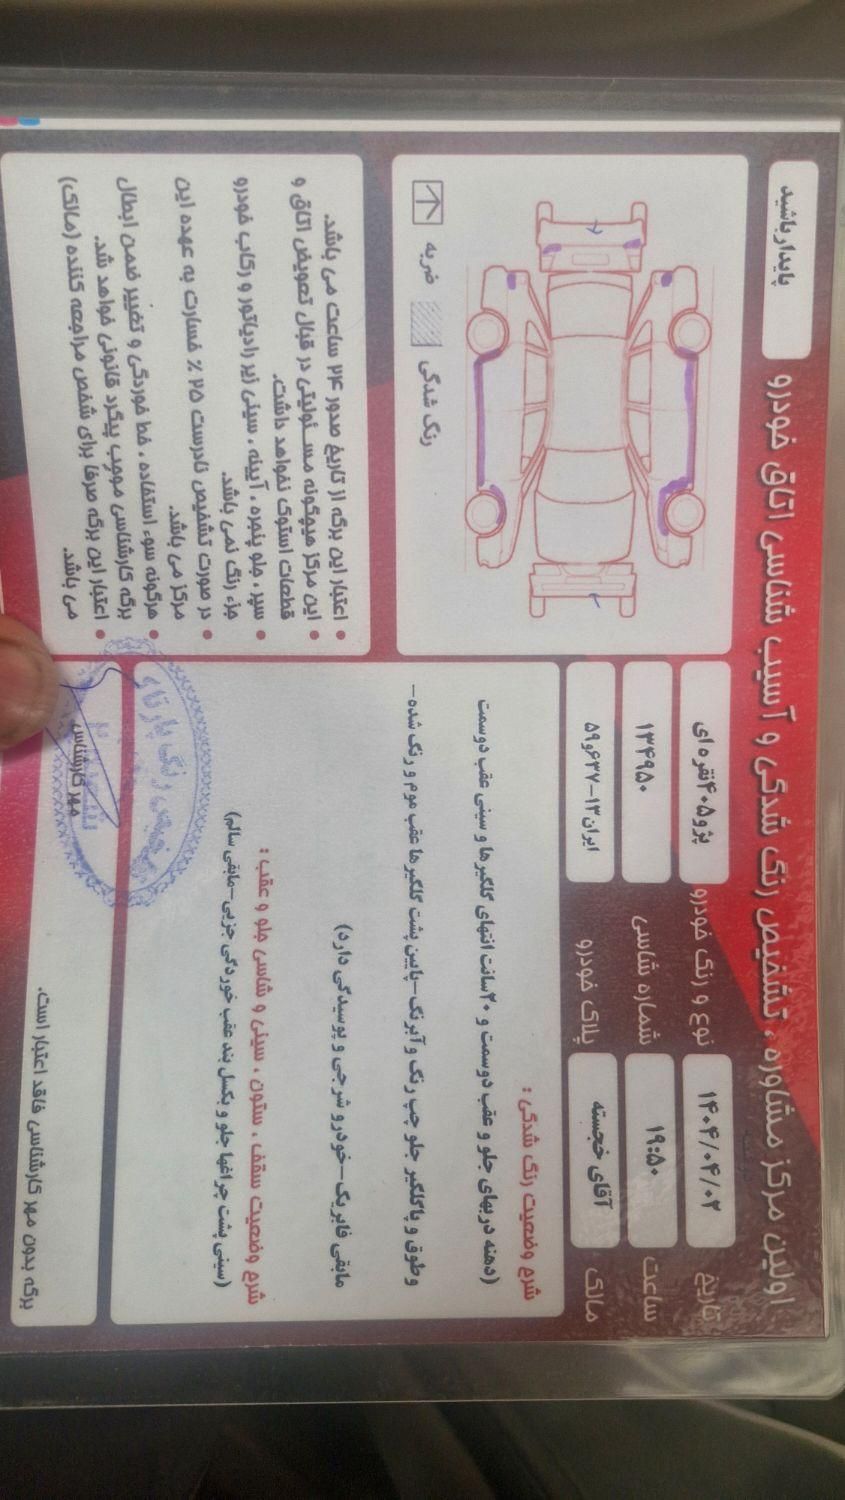 اولین مرکز مشاوره ، تشخیص رنگ شدگی و آسیب شناسی اتاق خودرو
پایدار باشید
تاریخ ۱۴۰۴/۰۴/۰۲
نوع و رنگ خودرو پژو۴۰۵نقره ای
ساعت ۱۹:۵۰
شماره شاسی ۱۳۴۹۵۰
مالک آقای خجسته
پلاک خودرو ایران۱۳-۶۳۷و۵۹
شرح وضعیت رنگ شدگی :
(دهنه دربهای جلو و عقب دوسمت و ۲۰سانت انتهای گلگیرها و سینی عقب دوسمت
وطوق و پاگلگیر جلو چپ رنگ و آبرنگ-پایین پشت گلگیرها عقب موم و رنگ شده-
مابقی فابریک-خودرو شرجی و پوسیدگی دارد)
شرح وضعیت سقف ، ستون ، سینی و شاسی جلو و عقب :
(سینی پشت چراغها جلو و بکسل بند عقب خوردگی جزیی-مابقی سالم)
ضربه
رنگ شدگی
• اعتبار این برگه از تاریخ صدور ۲۴ ساعت می باشد.
• این مرکز هیچگونه مسئولیتی در قبال تعویض اتاق و
قطعات استوک نخواهد داشت.
• سپر ، جلو پنجره ، آیینه ، سینی زیر رادیاتور و رکاب خودرو
جزء رنگ نمی باشد.
• در صورت تشخیص نادرست ۲۵ ٪ خسارت به عهده این
مرکز می باشد.
• هرگونه سوء استفاده ، خط خوردگی و تغییر ضمن ابطال
برگه کارشناسی موجب پیگرد قانونی خواهد شد.
• اعتبار این برگه صرفا برای شخص مراجعه کننده (مالک)
می باشد.
مهر کارشناس
برگه بدون مهر کارشناسی فاقد اعتبار است.